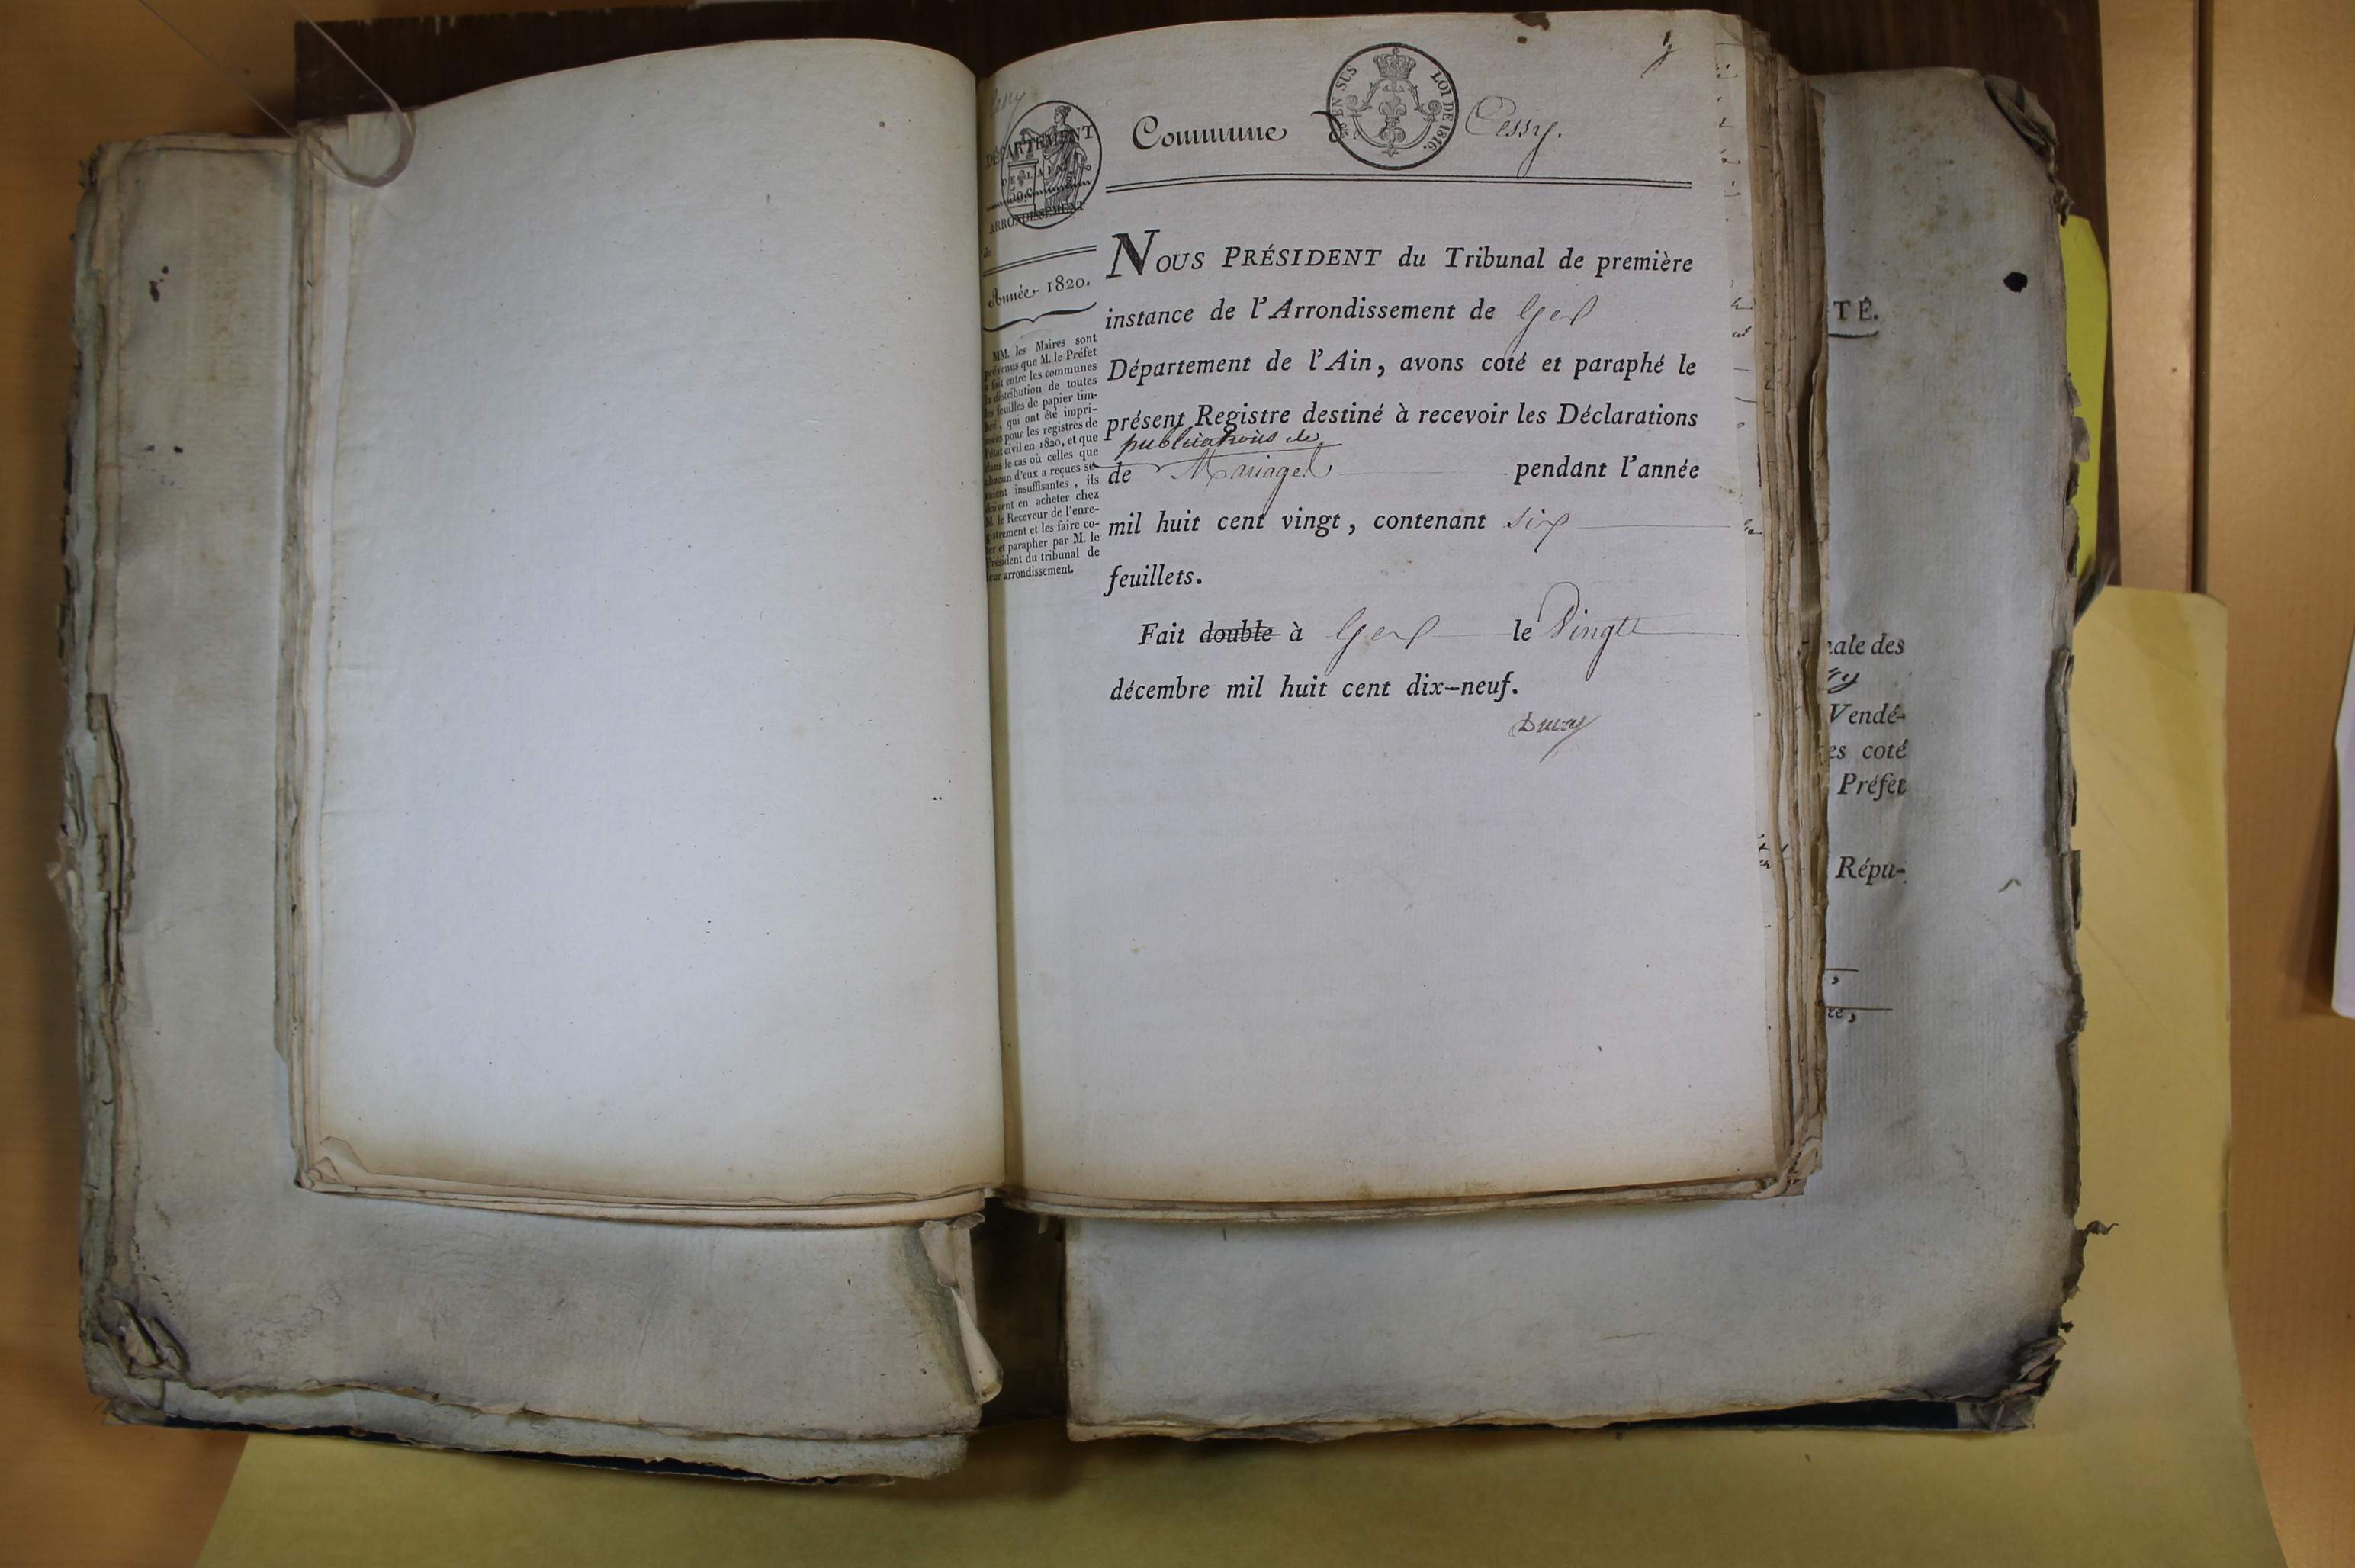 Cessy
DÉPARTEMENT
DE L'AIN
ARRONDISSEMENT
de
Année 1820.
MM. les Maires sont
prévenus que M. le Préfet
a fait entre les communes
la distribution de toutes
les feuilles de papier tim-
bré, qui ont été impri-
mées pour les registres de
l'état civil en 1820, et que
dans le cas où celles que
chacun d'eux a reçues se-
raient insuffisantes, ils
doivent en acheter chez
M. le Receveur de l'enre-
gistrement et les faire co-
ter et parapher par M. le
Président du tribunal de
leur arrondissement.
Commune d Cessy.
EN SUS LOI DE 1816.
NOUS PRÉSIDENT du Tribunal de première
instance de l'Arrondissement de Gex
Département de l'Ain, avons coté et paraphé le
présent Registre destiné à recevoir les Déclarations
publications de
de Mariages pendant l'année
mil huit cent vingt, contenant six
feuillets.
Fait double à Gex le Vingt
décembre mil huit cent dix-neuf.
TÉ.
nale des
Vendé-
es coté
Préfet
Répu-